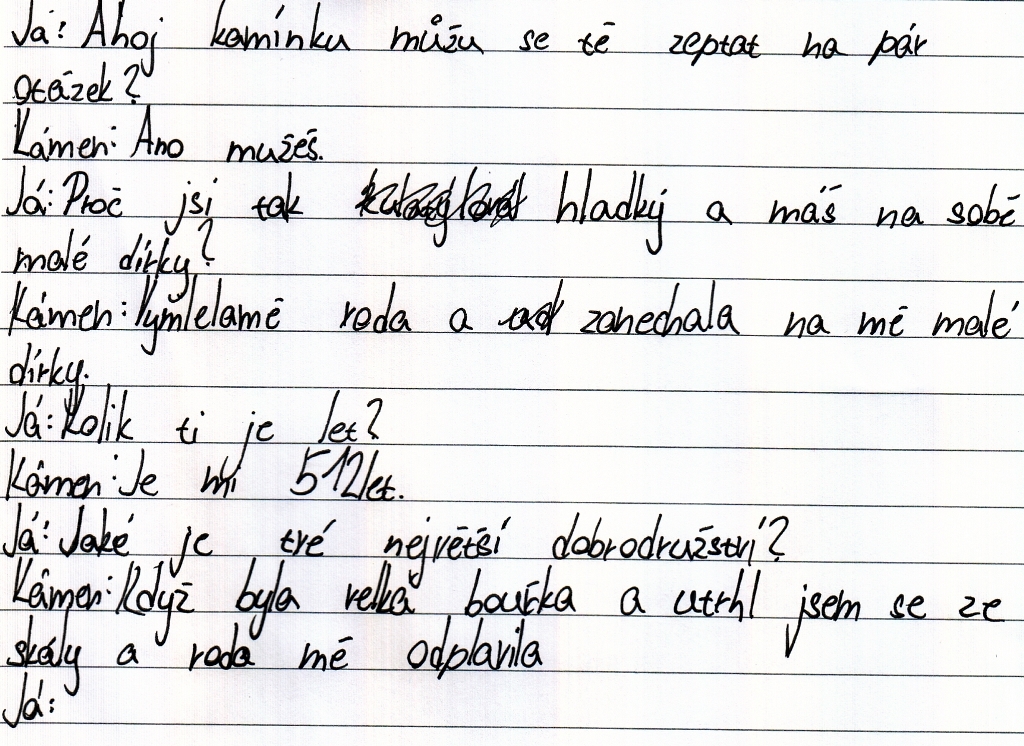 Já: Ahoj kamínku můžu se tě zeptat na pár
otázek?
Kámen: Ano mužeš.
Já: Proč jsi tak hladký a máš na sobě
malé dírky?
Kámen: Vymlelamě voda a zanechala na mě malé
dírky.
Já: Kolik ti je let?
Kámen: Je mi 512 let.
Já: Jaké je tvé největší dobrodružství?
Kámen: Když byla velká bouřka a utrhl jsem se ze
skály a voda mě odplavila
Já: